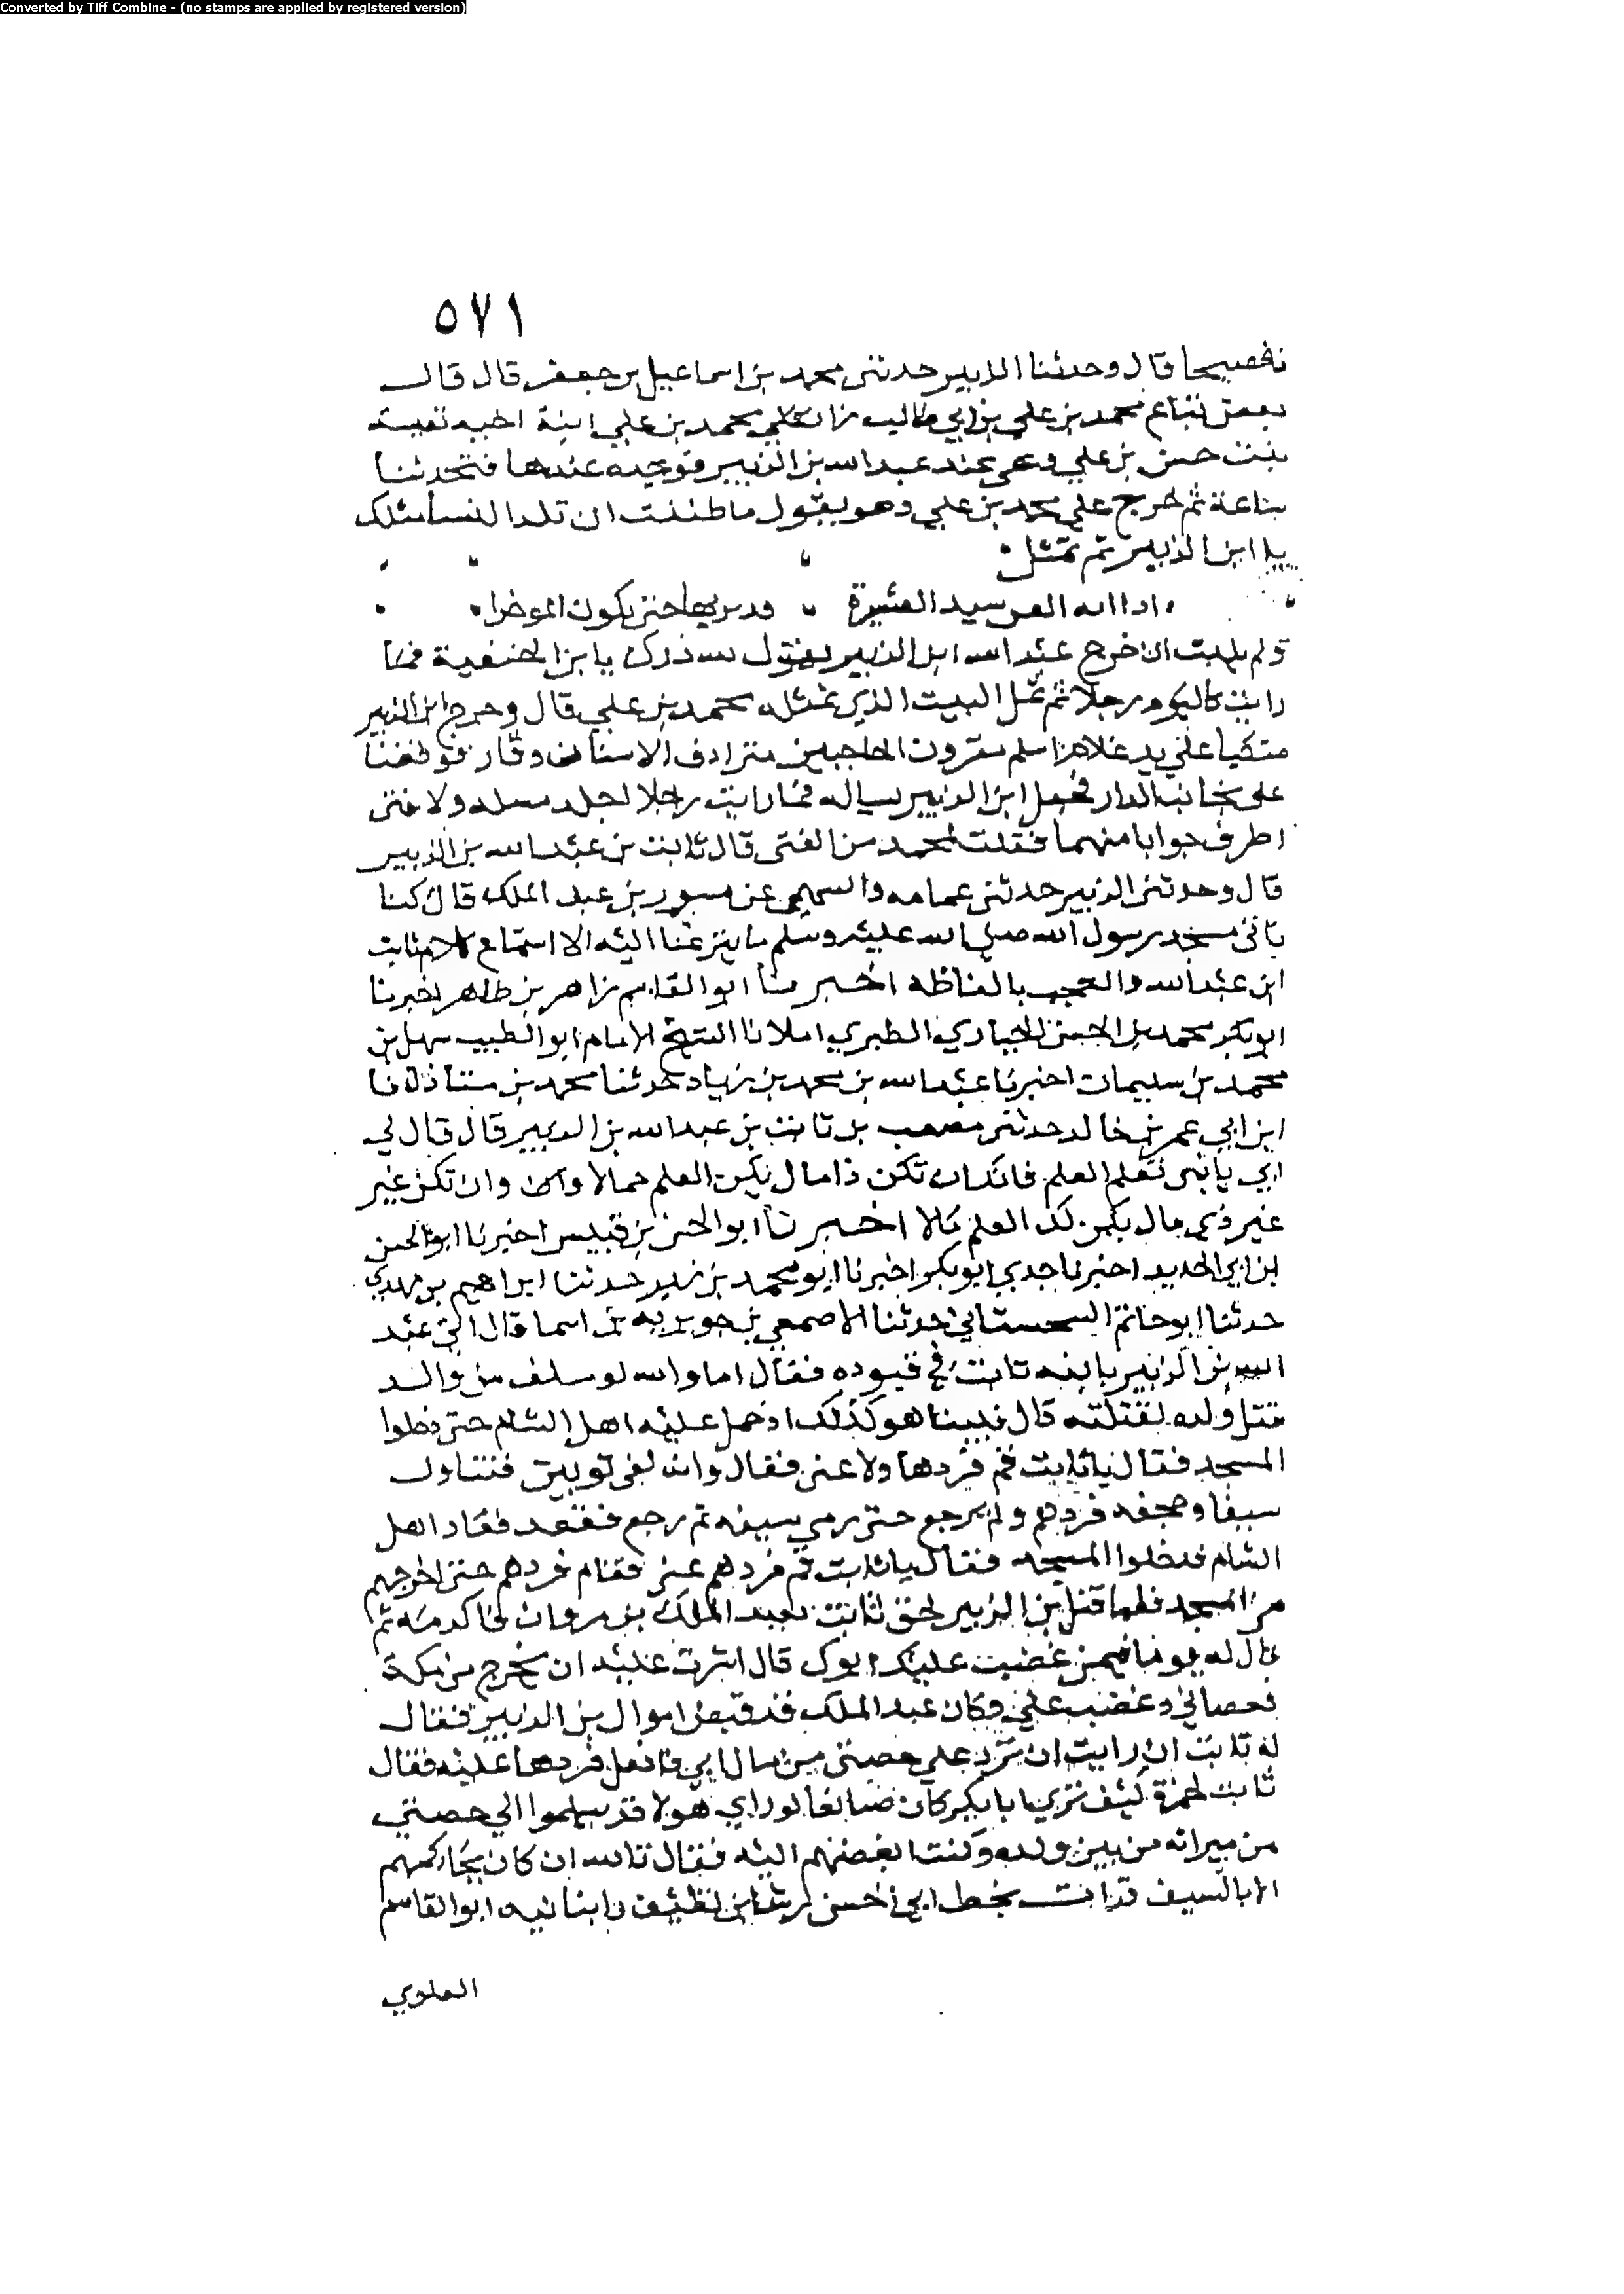 Converted by Tiff Combine - (no stamps are applied by registered version)
٥٧١
فصيحا قال وحدثنا الزبير حدثني محمد بن اسماعيل بن جعفر قال قال
بعض محمد بن علي بن ابي طالب محمد بن علي ابنة اخيه نفيسة
بنت حسن بن علي وهي عند عبدالله بن الزبير فوجده عندها فتحدثنا
ساعة ثم خرج علي محمد بن علي وهو يقول ما ظننت ان تلد النسا مثلك
يا ابن الزبير ثم تمثل
سيد العشيرة حتى يكون
ولم يلبث ان خرج عبد الله ابن الزبير يقول لله درك يا بن الحنفية فما
رايت كاليوم رجلا ثم تمثل البيت الذي تمثله محمد بن علي قال وخرج ابن الزبير
متكيا على يد غلام اسلم مقرون الحاجبين مترادف الاسنان وقار فوقفنا
على جانب الدار فجعل ابن الزبير يساله فما رايت رجلا ولا فتى
اظرف جوابا منهما فقلت لمحمد من الفتى قال ثابت بن عبد الله بن الزبير
قال وحدثني الزبير حدثني عمامه والسهمي عن مسور بن عبد الملك قال كنا
ناتى مسجد رسول الله صلى الله عليه وسلم ما ينزعنا اليه الا استماع كلام ثابت
ابن عبدالله والعجب بالفاظه اخبرنا ابو القاسم زاهر بن طاهر اخبرنا
ابو بكر محمد بن الحسن الخبازي الطبري املانا الشيخ الامام ابو الطيب سهل بن
محمد بن سليمان اخبرنا عبد الله بن محمد بن زياد حدثنا محمد بن
ابن ابي عمر بن خالد حدثني مصعب بن ثابت بن عبد الله بن الزبير قال قال لي
ابي يا بني تعلم العلم فانك ان تكن ذا مال يكن العلم جمالا وان تكن غير
غير ذي مال يكن لك العلم مالا اخبرنا ابو الحسن بن قبيس اخبرنا ابو الحسن
ابن ابي الحديد اخبرنا جدي ابو بكر اخبرنا ابو محمد بن زبر حدثنا ابراهيم بن مهدي
حدثنا ابو حاتم السجستاني حدثنا الاصمعي بن جويريه بن اسما قال اتى عبد
الله بن الزبير بابنه ثابت في قيوده فقال اما والله لو سلف من والد
قتل ولده لقتلته قال فبينا هو كذلك اذ حمل عليه اهل الشام حتى دخلوا
المسجد فقال يا ثابت قم فردها ولا عنى فقال وانا لفى ثوبين فتناول
سيفا وحجفه فردهم ولم يرجع حتى رمي بسيفه ثم رجع فقعد فعاد اهل
الشام فدخلوا المسجد فقال يا ثابت قم فردهم عنى فقام فردهم حتى اخرجهم
من المسجد فلما قتل بن الزبير لحق ثابت بعبد الملك بن مروان فاكرمه ثم
قال له يوما فيمن غضبت عليك ابوك قال اشرت عليه ان يخرج من مكة
فعصاني وغضب علي وكان عبد الملك قد قبض اموال بن الزبير فقال
له ثابت ان رايت ان ترد علي حصتي من مال ابي فافعل فردها عليه فقال
ثابت لحمزة كيف ترى ابا بكر كان صانعا لو راي هولا قد سلموا الي حصتي
من ميراثه من بين ولده وكنت ابغضهم اليه فقال تالله ان كان يحاكمهم
الا بالسيف قرات بخط ابي الحسن رشا بن نظيف وانبانيه ابو القاسم
العلوي